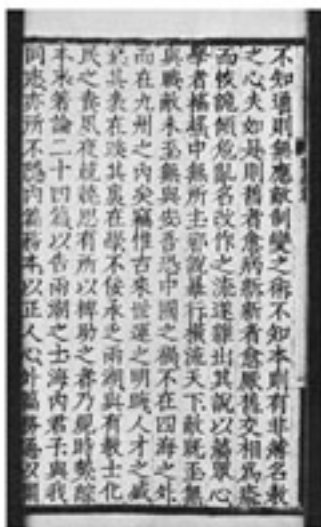 不知通則無應敵制變之術不知本則有非薄名教
之心夫如是則舊者愈病新新者愈厭舊交相爲瘉
而恢詭傾危亂名改作之流遂雜出其說以蕩眾心
學者搖搖中無所主邪說暴行橫流天下敵既至無
與戰敵未至無與安吾恐中國之禍不在四海之外
而在九州之內矣竊惟古來世運之明晦人才之盛
衰其表在政其裏在學不佞承乏兩湖與有教士化
民之責夙夜兢兢思有所以裨助之者乃規時勢綜
本末著論二十四篇以告兩湖之士海內君子與我
同志亦所不隱內篇務本以正人心外篇務通以開